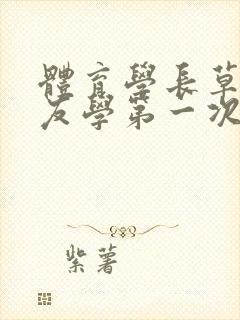 體育學長草
友學第一次
紫薯